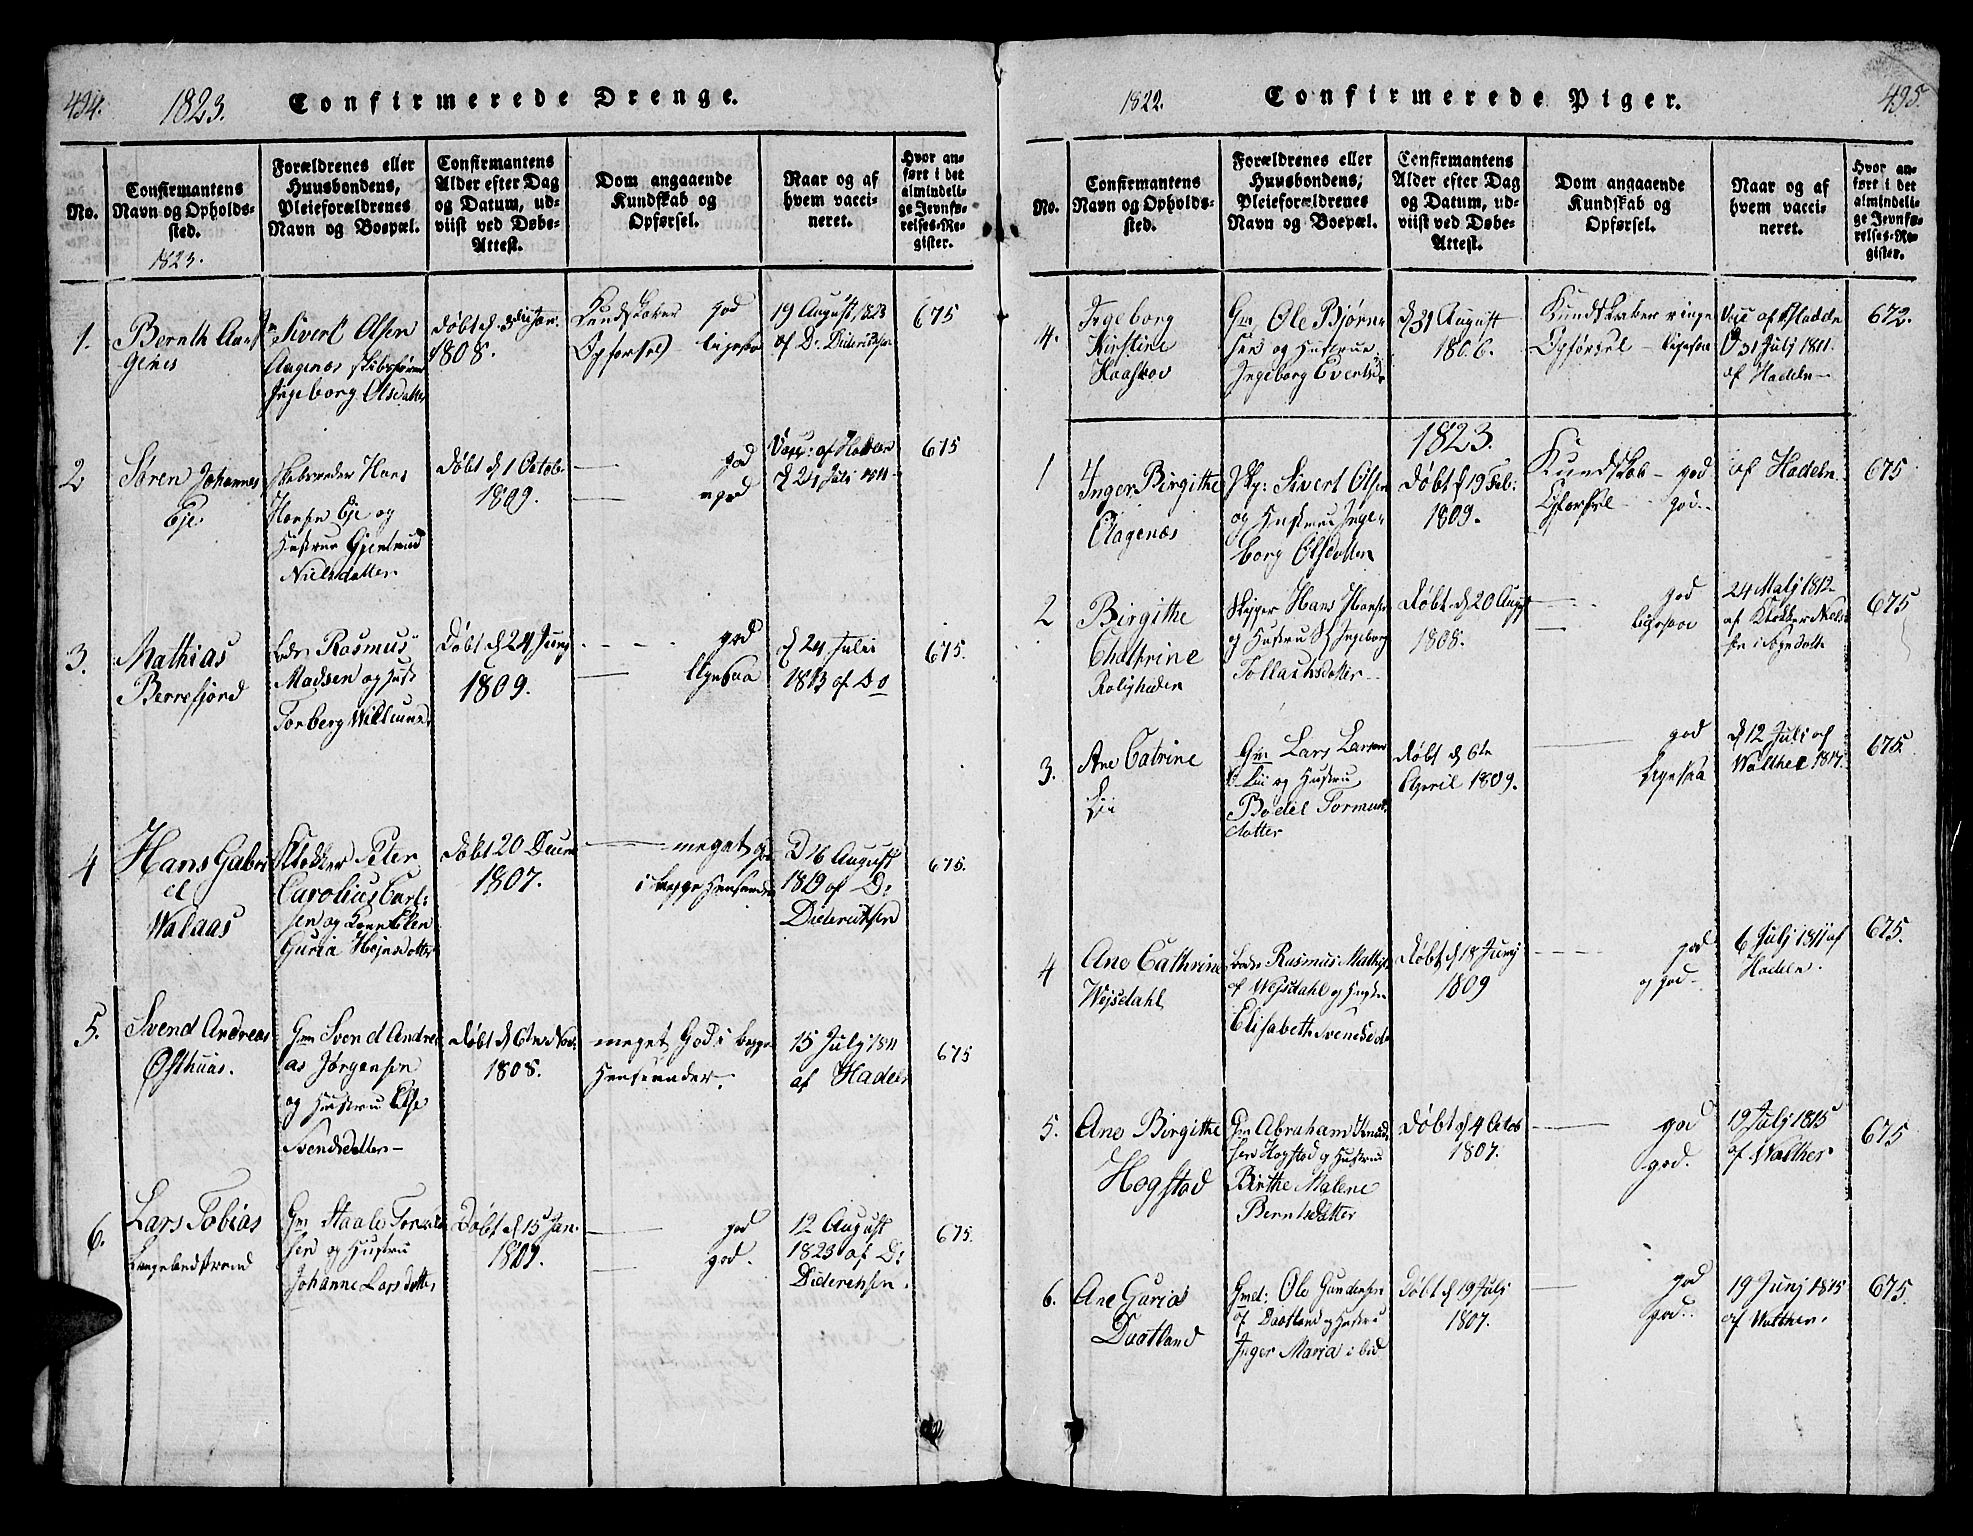 494.
1823.
Confirmerede Drenge.
No.
Confirmantens
Navn og Opholds-
sted.
1823.
Forældrenes eller
Huusbondens,
Pleieforældrenes
Navn og Boepæl.
Confirmantens
Alder efter Dag
og Datum, ud-
viist ved Døbe-
Attest.
Dom angaaende
Kundskab og
Opførsel.
Naar og af
hvem vacci-
neret.
Hvor an-
ført i det
almindeli-
ge Jevnfø-
relses-Re-
gister.
1.
Bernth
Sivert Olsen
Aagenæs
Ingeborg Olsdatter
Døbt d.
1808.
god
Opførsel
19 August 1823
af Dr. Diderichsen
675
2
Søren Johannes
Eje
Hans
Hansen Eje og
Hustrue Gjertrud
Nielsdatter
Døbt d 1 Octob.
1809.
god
af Hadeln
675
3.
Mathias
Berrefjord
Rasmus
Madsen og
Torberg
Døbt d 24 Junj
1809.
god
ligesaa
d 24 Juli
1813 af Do
675.
4
Hans Gabri
el
Walaas
Klokker Peter
Carolius Carl-
sen og Kone Ellen
Guria
Døbt 20 Decem
1807.
meget god
i begge Henseender
D 16 August
1819 af Dr
Diderichsen
675.
5.
Svend Andreas
Østhuus.
Gm Svend Andre
as Jørgensen
og Hustru Else
Svendsdatter
Døbt d 6te Nov.
1808.
meget God i begge
Henseender.
15 Julj 1811
af Hadeln
675
6.
Lars Tobias
Langelandstrand
Gm Staale
sen og Hustru
Johanne Larsdatter
Døbt d 15 Jan.
god
god.
12 August
1823 af Dr
Diderichsen.
675.
1822.
Confirmerede Piger.
495.
No.
Confirmantens
Navn og Opholds-
sted.
Forældrenes eller
Huusbondens,
Pleieforældrenes
Navn og Boepæl.
Confirmantens
Alder efter Dag
og Datum, ud-
viist ved Døbe-
Attest.
Dom angaaende
Kundskab og
Opførsel.
Naar og af
hvem vacci-
neret.
Hvor an-
ført i det
almindeli-
ge Jevnfø-
relses-Re-
gister.
4.
Ingeborg
Kirstine
Haaskov
Gm. Ole Bjørn-
sen og Hustrue
Ingeborg
d 31 August
1806.
Kundskaber ringe
Opførsel - ligesaa
31 Julj 1811.
af Hadeln
672.
1823.
1
Inger Birgithe
Aagenæs
Sivert Olsen
og Hustrue Inge-
borg Olsdatter
Døbt d 19 Feb:
1809.
Kundskab - god
Opførsel - god.
af Hadeln
675
2
Birgithe
Chathrine
Roligheden
Skipper Hans Hansen
og Hustru Ingeborg
Døbt d 20 Augst
1808.
god
ligesaa
24 Maij 1812
af Klokker
675
3.
Ane Catrine
Lii
Gm Lars Larsen
Lii og Hustru
Bodil Tormunds
datter
Døbt d 6te
April 1809.
god
ligesaa
d 12 Juli af
Walther 1817.
675.
4
Ane Cathrine
Wejsdahl
Rasmus
af Wejsdahl og Hustru
Elisabeth Svendsdr
Døbt d 18 Junj
1809
god
og god
6 Julj 1811 af
Hadeln.
675.
5.
Ane Birgithe
Hogstad
Gm Abraham Knud
sen Hogstad og Hustrue
Birthe Malene
Berntsdatter
Døbt d 4 Octob
1807.
god
god.
19 Julj 1815
af Walther
675
6.
Ane Gurias
Daatland
Gmd: Ole Gundersen
af Daatland og Hustru
Inger Maria
Døbt d 19 Julj
1807.
god
god.
19 Junj 1815
af Walther.
675.